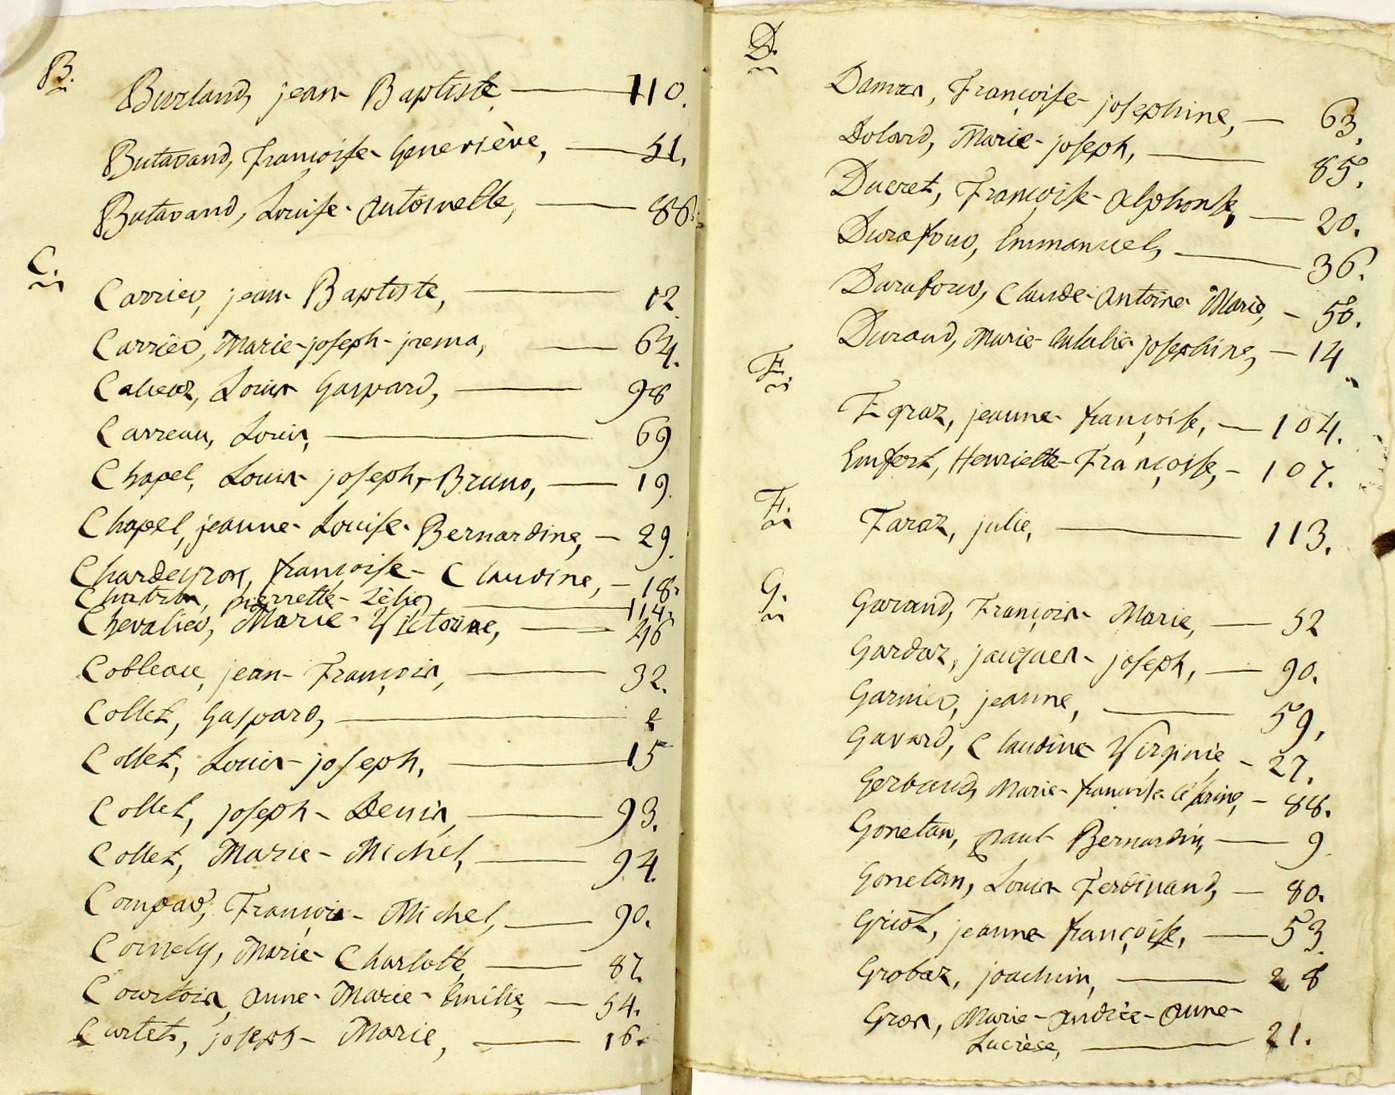 B.
Burland, jean Baptiste — 110.
Butavand, françoise Geneviève, — 51.
Butavand, Louise Antoinette, — 88.
C.
Carrier, jean Baptiste, — 12
Carrier, Marie-joseph-jrema, — 64.
Louis Gaspard, — 98
Carreau, Louis, — 69
Chapel, Louis joseph, Bruno, — 19.
Chapel, jeanne-Louise-Bernardine, — 29.
Chardeyron, françoise-Claudine, — 18.
pierrette-Zélie — 114.
Chevalier, Marie-Victoire, — 46
Cobleau, jean-François, — 32.
Collet, Gaspard, — 2
Collet, Louis-joseph, — 15
Collet, joseph-Denis, — 93.
Collet, Marie-Michel, — 94.
Compad, François-Michel, — 90.
Cornely, Marie-Charlotte, — 87.
Courtois, Anne-Marie-Emilie, — 54.
Curtet, joseph-Marie, — 16.
D.
Damas, Françoise-josephine, — 63.
Dolard, Marie-joseph, — 85.
Ducret, Françoise-Alphonse, — 20.
Durafour, Emmanuel, — 36.
Durafour, Claude-Antoine-Marie, — 50.
Durand, Marie-Eulalie josephine, — 14
E.
Egraz, jeanne-françoise, — 104.
Emfert, Henriette-Françoise, — 107.
F.
Faraz, julie, — 113.
G.
Garand, François-Marie, — 52
Gardaz, jacques-joseph, — 90.
Garnier, jeanne, — 59,
Gavard, Claudine Virginie — 27.
Gerbaud, Marie-françoise — 88.
Gonetan, Paul Bernardin, — 9
Gonetan, Louis Ferdinand, — 80.
Griot, jeanne françoise, — 53.
Grobaz, joachim, — 28
Gros, Marie-Andrée-Anne-
Lucrèce, — 21.